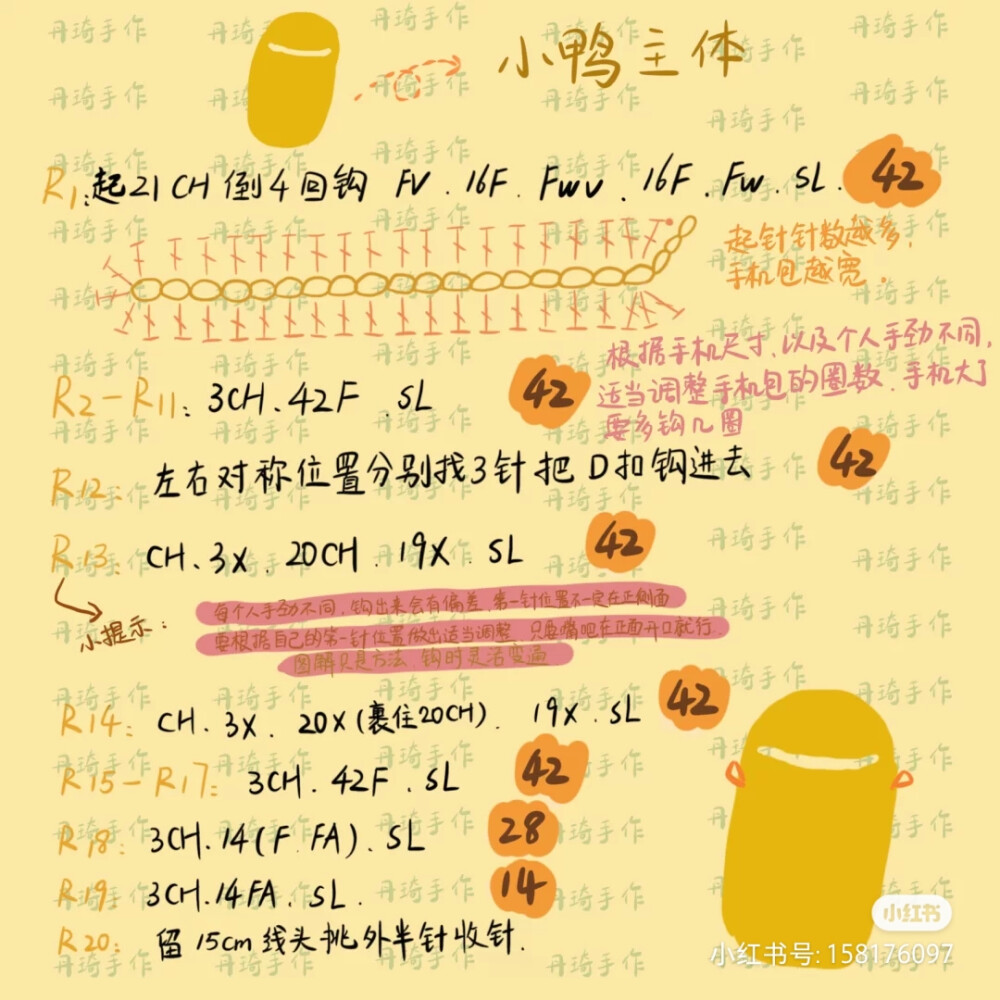 小鸭主体
R1:起21CH倒4回钩 FV.16F.FWV.16F.FW.SL. 42
起针针数越多,
手机包越宽.
根据手机尺寸,以及个人手劲不同,
适当调整手机包的圈数.手机大了
要多钩几圈
R2-R11:3CH.42F.SL 42
R12:左右对称位置分别找3针把D扣钩进去 42
R13:CH.3X.20CH.19X.SL 42
小提示:
每个人手劲不同,钩出来会有偏差.第一针位置不一定在正侧面
要根据自己的第一针位置做出适当调整.只要嘴吧在正面开口就行.
图解只是方法 钩时灵活变通
R14:CH.3X.20X(裹住20CH).19X.SL 42
R15-R17:3CH.42F.SL 42
R18:3CH.14(F.FA).SL 28
R19:3CH.14FA.SL. 14
R20:留15cm线头挑外半针收针.
小红书
小红书号:158176097
丹琦手作